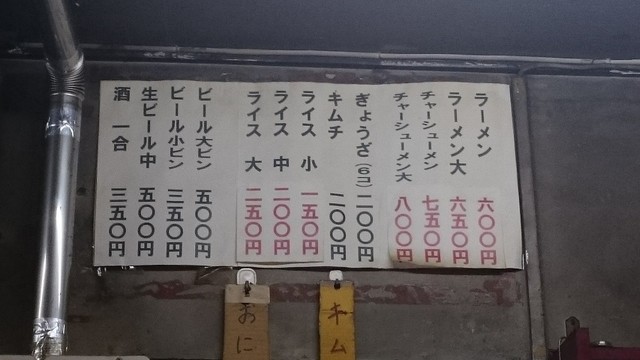 ラーメン 六〇〇円
ラーメン大 六五〇円
チャーシューメン 七五〇円
チャーシューメン大 八〇〇円
ぎょうざ(6コ) 二〇〇円
キムチ 二〇〇円
ライス 小 一五〇円
ライス 中 二〇〇円
ライス 大 二五〇円
ビール大ビン 五〇〇円
ビール小ビン 三五〇円
生ビール中 五〇〇円
酒 一合 三五〇円
キム
おに